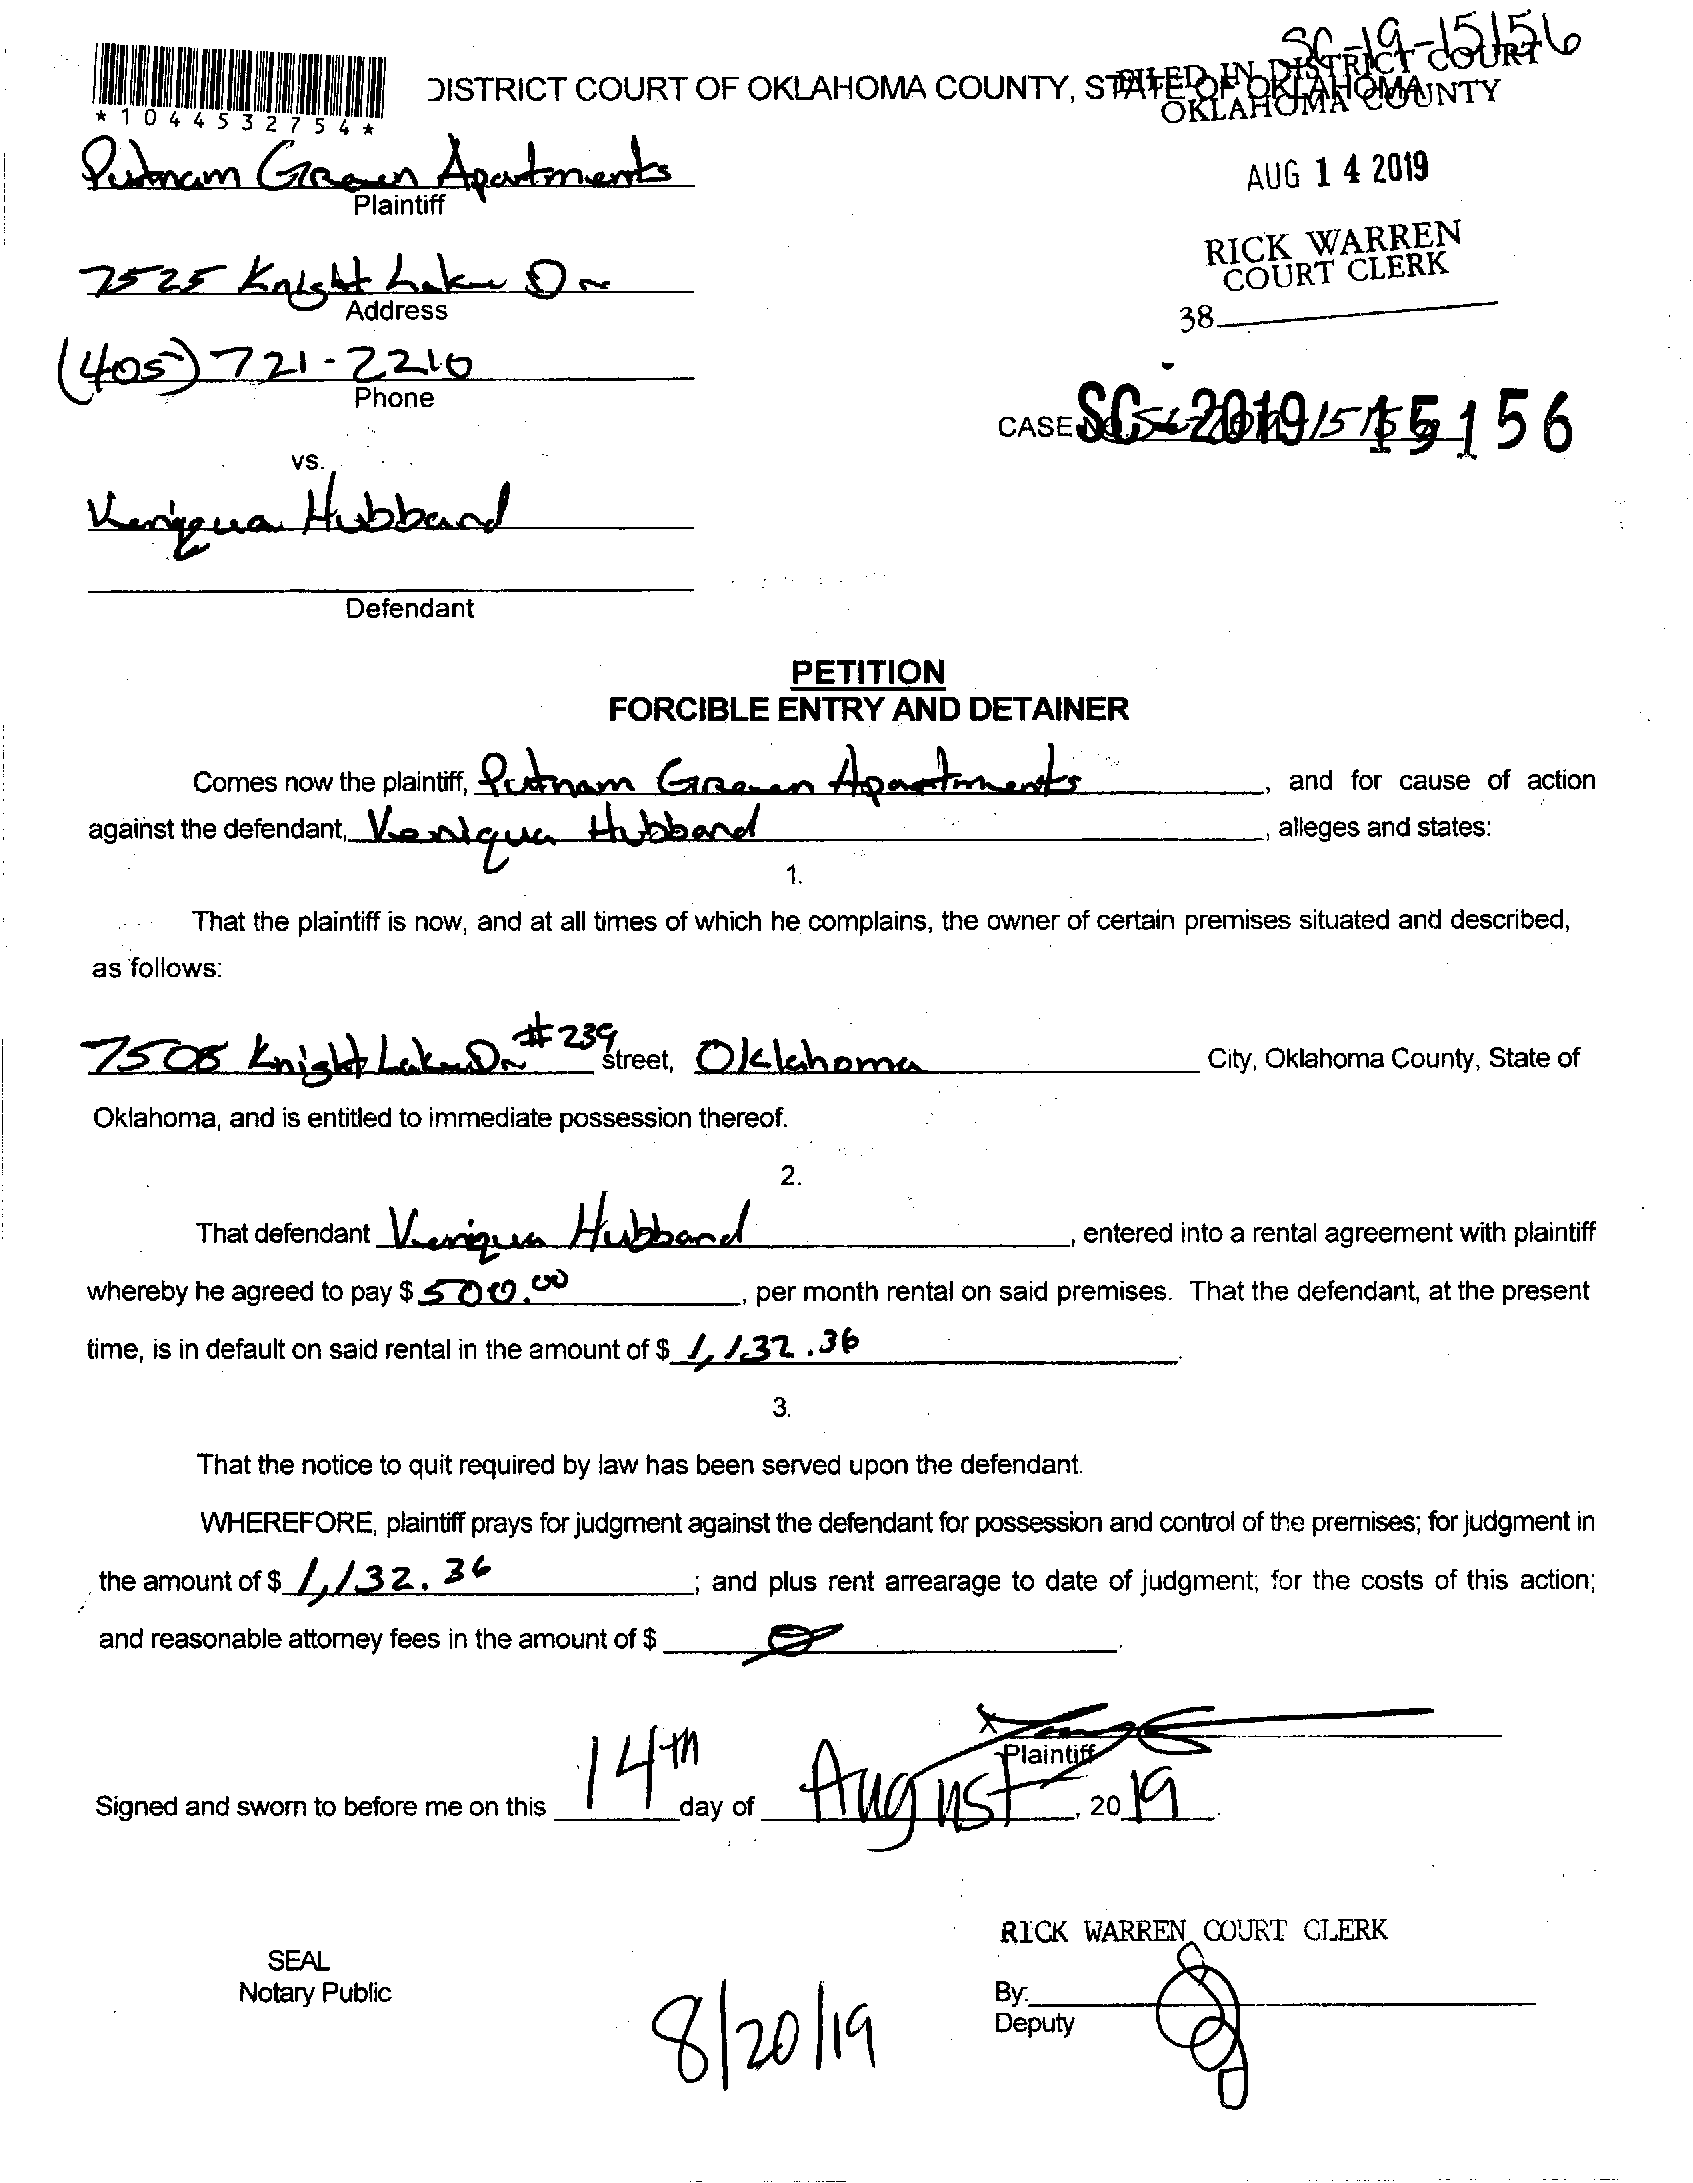 SC-19-15156
DISTRICT COURT OF OKLAHOMA COUNTY, STATE OF OKLAHOMA
FILED IN DISTRICT COURT
OKLAHOMA COUNTY
*1044532754*
Putnam Green Apartments
Plaintiff
AUG 14 2019
RICK WARREN
COURT CLERK
38
7525 Knight Lake Dr
Address
(405) 721-2210
Phone
CASE NO. SC-2019-15156
vs.
Hubbard
Defendant
PETITION
FORCIBLE ENTRY AND DETAINER
Comes now the plaintiff, Putnam Green Apartments, and for cause of action
against the defendant, Veniqua Hubbard, alleges and states:
1.
That the plaintiff is now, and at all times of which he complains, the owner of certain premises situated and described,
as follows:
7508 Knight Lake Dr #239 street, Oklahoma City, Oklahoma County, State of
Oklahoma, and is entitled to immediate possession thereof.
2.
That defendant Veniqua Hubbard, entered into a rental agreement with plaintiff
whereby he agreed to pay $ 500.00, per month rental on said premises. That the defendant, at the present
time, is in default on said rental in the amount of $ 1,132.36.
3.
That the notice to quit required by law has been served upon the defendant.
WHEREFORE, plaintiff prays for judgment against the defendant for possession and control of the premises; for judgment in
the amount of $ 1,132.36; and plus rent arrearage to date of judgment; for the costs of this action;
and reasonable attorney fees in the amount of $ 0.
X
Plaintiff
Signed and sworn to before me on this 14th day of August, 2019.
RICK WARREN COURT CLERK
SEAL
Notary Public
By:
Deputy
8/20/19